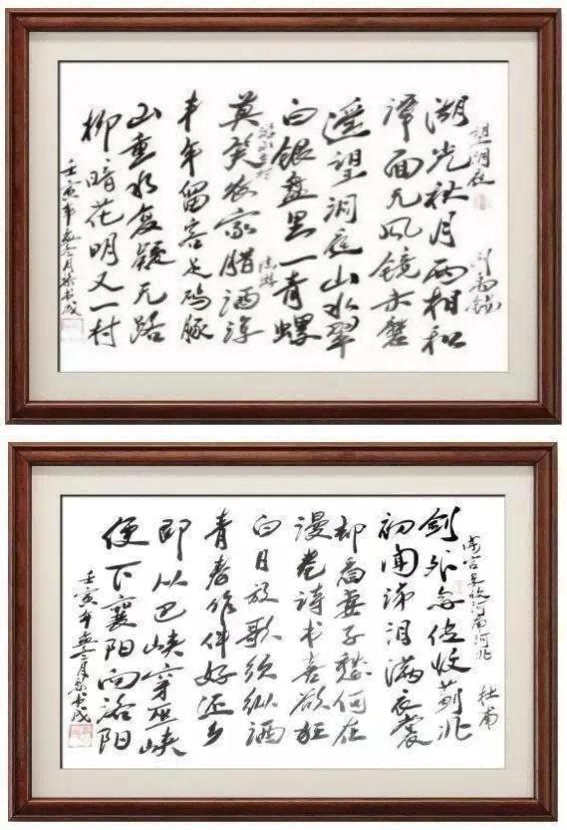 望洞庭 刘禹锡
湖光秋月两相和
潭面无风镜未磨
遥望洞庭山水翠
白银盘里一青螺
游山西村 陆游
莫笑农家腊酒浑
丰年留客足鸡豚
山重水复疑无路
柳暗花明又一村
壬寅年
闻官军收河南河北 杜甫
剑外忽传收蓟北
初闻涕泪满衣裳
却看妻子愁何在
漫卷诗书喜欲狂
白日放歌须纵酒
青春作伴好还乡
即以巴峡穿巫峡
便下襄阳向洛阳
壬寅年